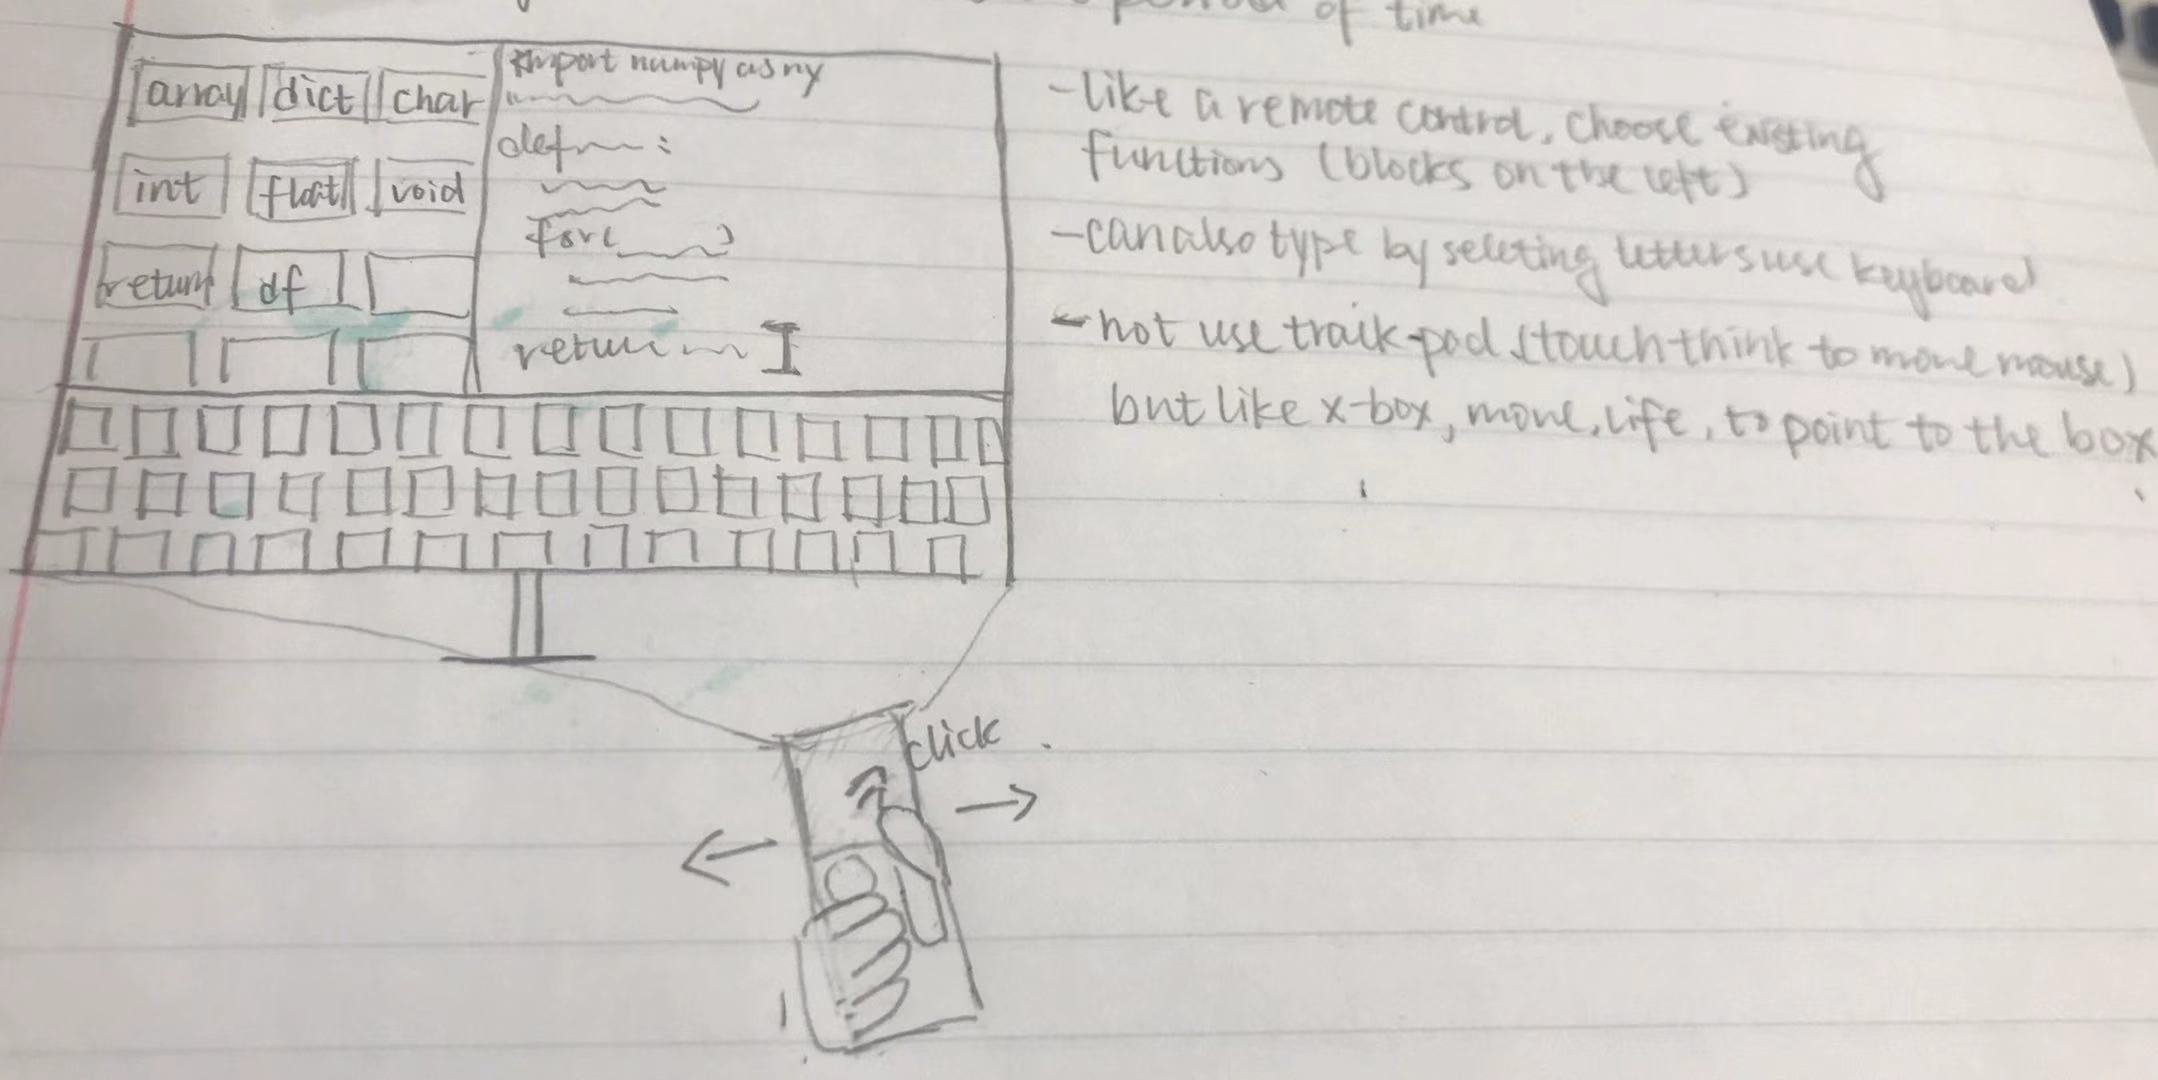 of time
array dict char
int float void
return df
import numpy as ny
def :
for( )
return
-like a remote control, choose existing
functions (blocks on the left)
-can also type by seleting letters use keyboard
-not use track-pad (touch think to move mouse)
but like x-box, move, life, to point to the box
click